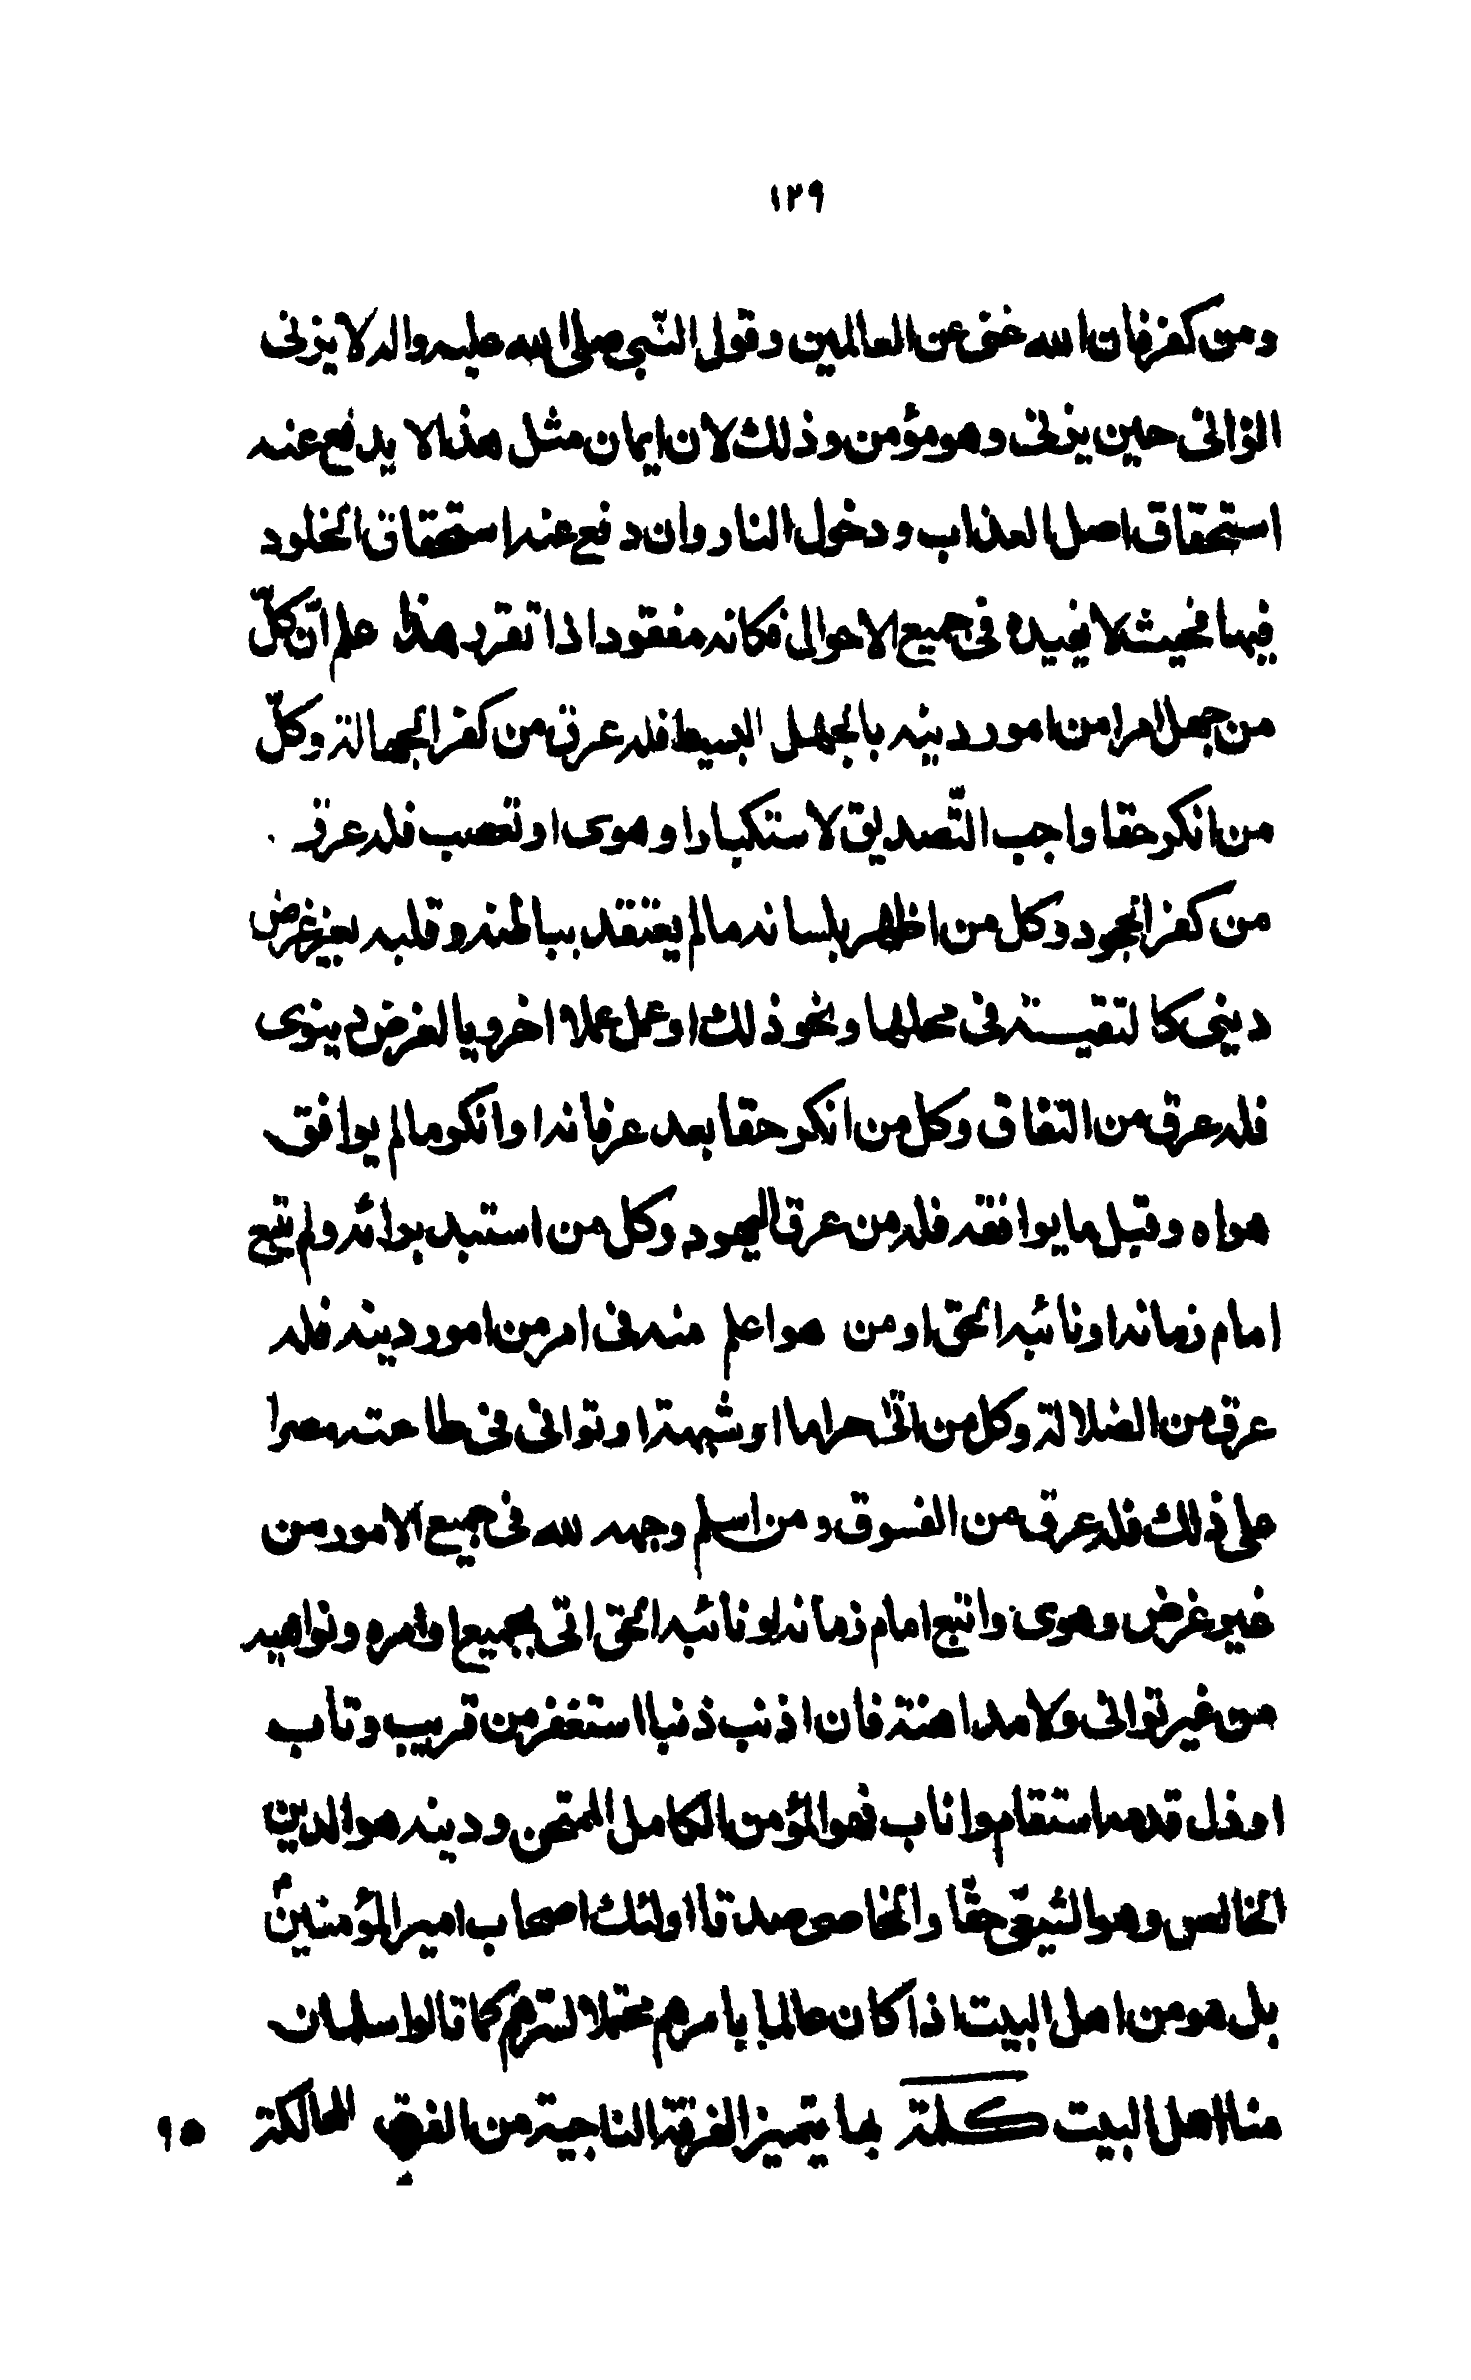 ١٢٩
ومن كفر فان الله غنى عن العالمين وقول النّبى صلى الله عليه واله لا يزنى
الزانى حين يزنى وهو مؤمن وذلك لان ايمان مثل هذا لا يدفع عنه
استحقاق اصل العذاب ودخول النار وان دفع عنه استحقاق الخلود
فيها فحيث لا يفيده فى جميع الاحوال فكانه مفقود اذا تقرر هذا علم انّ كلّ
من جهل امرا من امور دينه بالجهل البسيط فله عرق من كفر الجهالة وكلّ
من انكر حقا واجب التّصديق لاستكبار او هوى او تعصب فله عرق
من كفر الجحود وكل من اظهر بلسانه ما لم يعتقد بباطنه وقلبه بغير غرض
دينى كالتقيسة فى محلها ونحو ذلك او عمل عملا اخرويا لغرض دينوى
فله عرق من النفاق وكل من انكر حقا بعد عرفانه او انكر ما لم يوافق
هواه وقبل ما يوافقه فله من عرق اليهود وكل من استبد برائه ولم يتبع
امام زمانه او نائبه الحق او من هو اعلم منه فى امر من امور دينه فله
عرق من الضلالة وكل من اتى حراما او شبهة او توانى فى طاعته مصرا
على ذلك فله عرق من الفسوق ومن اسلم وجهه لله فى جميع الامور من
غير غرض وهوى واتبع امام زمانه او نائبه الحق اتى بجميع اوامره ونواهيه
من غير توانى ولا مداهنة فان اذنب ذنبا استغفر من قريب وتاب
او زل قدمه استقام واناب فهو المؤمن الكامل الممتحن ودينه هو الدين
الخالص وهو الشيعّى حقّا والخاص صدقا اولئك اصحاب امير المؤمنينؑ
بل هو من اهل البيت اذا كان عالما بامرهم محتملا لسرهم كما قالوا سلمان
منا اهل البيت كلمة بها يتميز الفرقة الناجية من الفرق الهالكة ٩٥